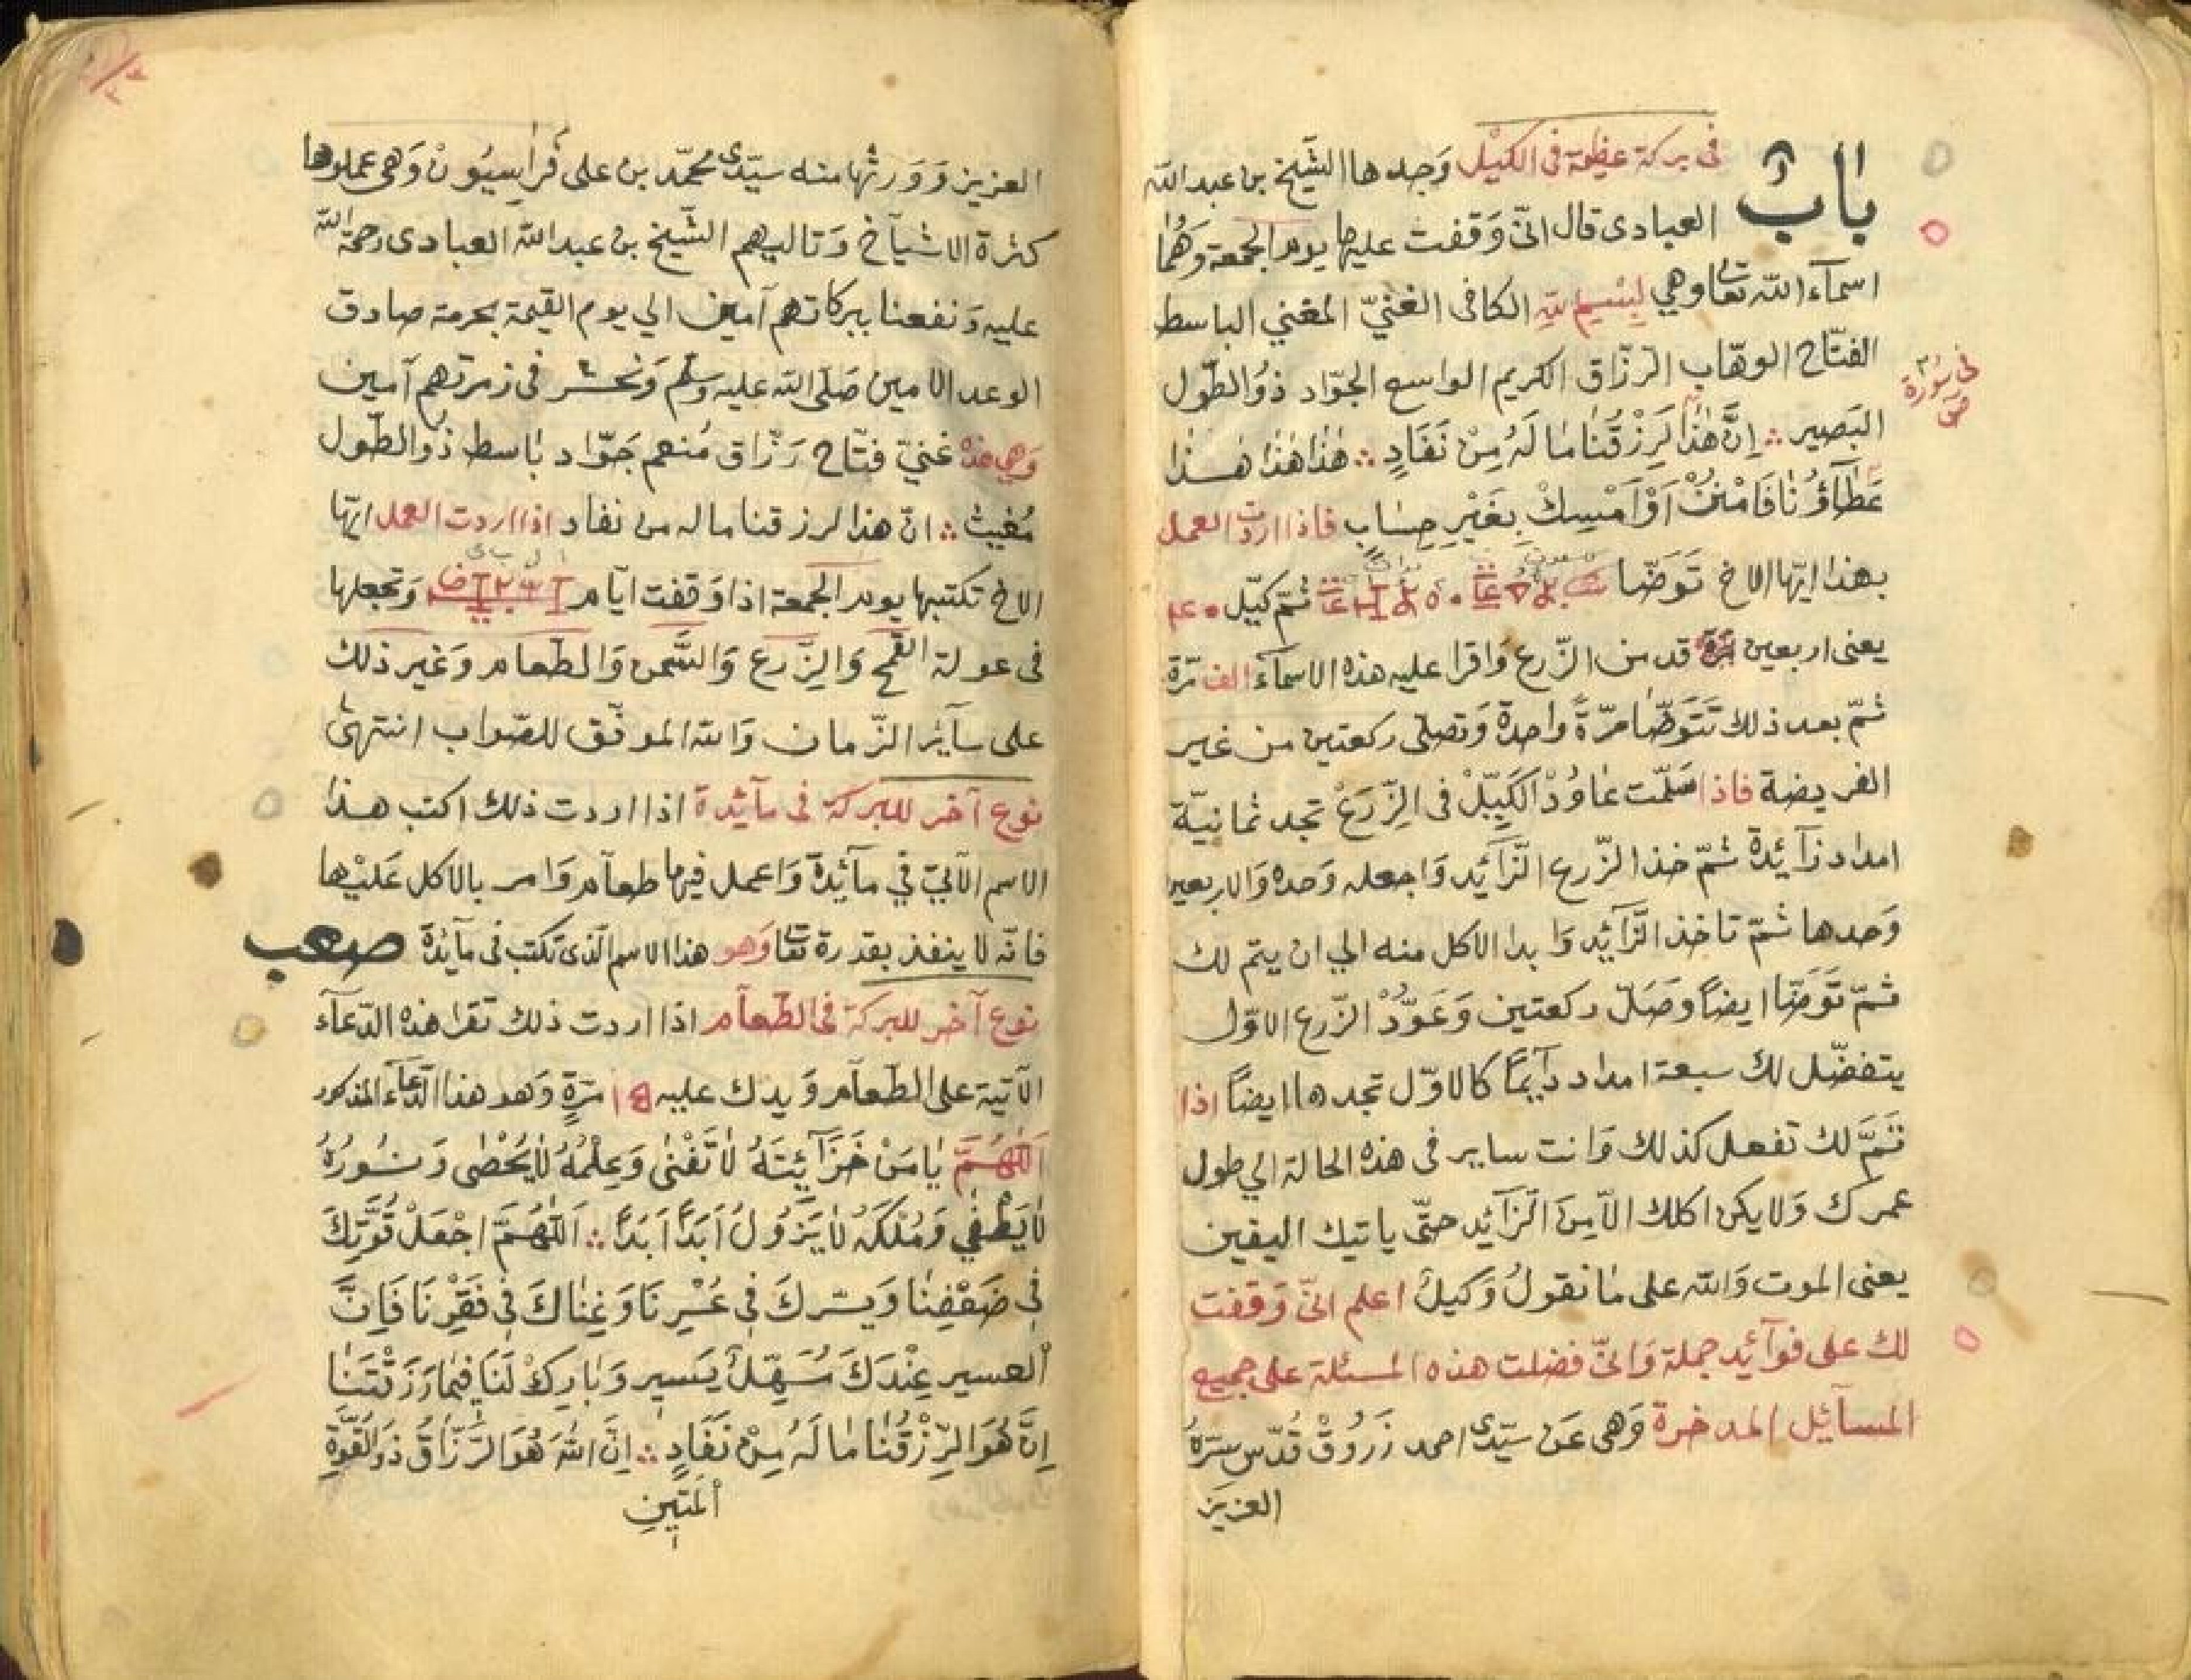 باب في بركة عظيمة في الكَيْل وَجدها الشّيخ بن عبد الله
العبادى قال انّى وَقفت عليها يوم الجمعة وَهُما
اسمآء الله تعا وهي لِبْسِيمِ اللهِ الكافى الغنيّ المغني الباسط
الفتّاح الوهّاب الرّزّاق الكريم الواسع الجوّاد ذوُ الطّول
البَصير ∴ اِنَّ هٰذٰا لَرِزْقُنٰا مٰا لَهُ مِنْ نَفَادٍ ∴ هٰذٰا هٰذٰا هٰذٰا
في سُورة ص
عَطٰآؤُنٰا فَامْنُنْ اَوْ اَمْسِكْ بِغَيْرِ حِسٰابٍ فاذا اردت العمل
بهذا ايّها الاخ تَوَضّا ثمّ كيّل ٤٠
يعنى اربعين مَرّة قد من الزّرع وَاقرا عليه هذه الاسمآء الف مَرّة
ثمّ بعد ذلك تَتَوَضّا مرّةً واحدة وَتصلّى ركعتين من غير
الفريضة فاذا سَلّمت عٰاوُدْ الكَيِّلْ فى الزِّرَعْ تجد ثمانيّة
امداد زآئدة ثمّ خذ الزّرع الزّآئد وَاجعله وَحده وَالاربعين
وَحدها ثمّ تاخذ الزّآئد وَابدا الاكل منه الي ان يتم لك
ثمّ تَوَضّا ايضاً وصَلّ ركعتين وَعَوّدْ الزّرع الاوّل
يتفضّل لك سبعة امداد دآيماً كالاوّل تجدها ايضاً اذا
تَمَّ لك تفعل كذلك وَانت ساير فى هذه الحالة الي طول
عمرك وَلا يكن اكلك الاّ مِنَ الزّآئد حتّى ياتيك اليقين
يعنى الموت وَالله على مٰا نقولُ وَكيلُ اعلم انّى وَقفت
لك على فوآئد جملة وَانّى فضلت هذه المسئلة على جميع
المسآئل المدخرة وَهى عَن سيّدى احمد زَرُوقْ قدّس سِرّهُ
العزيز
العزيز وَوَرثها منه سيّدى محمّد بن على فراٰسِيُونْ وَهى عملوها
كثرة الاشيآخ وَتاليهم الشّيخ بن عبد الله العبادى رحمة الله
عليه وَنفعنا ببركاتهم آمين الي يوم القيمة بحرمة صادق
الوعد الامين صَلّى الله عليه وَسَلّم وَنحشر فى زمرتهم آمين
وَهى هذه غنيّ فتّاح رَزّاق مُنعم جَوّاد بٰاسط ذوُ الطّول
مُغيث ∴ انّ هذا لرزقنا ماله من نفاد اذا اردت العمل ايّها
الاخ تكتبها يوم الجمعة اذا وَقفت ايّام وَتجعلها
فى عولة القمح وَالزِّرع وَالسَّمن وَالطعام وَغير ذلك
على سآئر الزّمان وَالله الموفّق للصّواب انتهى
نوع آخر للبركة فى مآئدة اذا اردت ذلك اكتب هذا
الاسم الآتيّ في مآئدة وَاعمل فيها طعآم وَامر بالاكل عَلَيْها
فانّه لا ينفذ بقدرة تعا وَهو هذا الاسم الّذى تكتب فى مآئدة صعب
نوع آخر للبركة فى الطّعآم اذا اردت ذلك تقرا هذه الدّعآء
الآتية على الطعآم وَيدك عليه مَرّةٍ وَهو هذا الدّعآء المذكور
اَللّٰهُمَّ يٰا مَنْ خَزٰآئِنَهُ لاٰ تَفْنٰى وَعِلْمُهُ لاٰ يُحْصٰى وَنُورُهُ
لاٰ يَطْفِي وَمُلْكَهُ لاٰ يَزُولُ اَبَدًا اَبَدًا ∴ اَللّٰهُمَّ اجْعَلْ قُوَّتِكَ
فِي ضَعْفِنٰا وَيسْرِكَ فِي عُسْرِنَا وَغِنٰاكَ فِي فَقْرِنَا فَاِنَّ
اْلعسير عِنْدَكَ سَهْلٌ يَسير وَبٰارِكْ لَنَا فِيمٰا رَزَقْتَنٰا
اِنَّ هُوَ الرِّزْقُنٰا مٰا لَهُ مِنْ نَفَادٍ ∴ اِنَّ اللّٰهَ هُوَ الرَّزّٰاقُ ذوُالقُوّةِ
اْلمَتِينِ